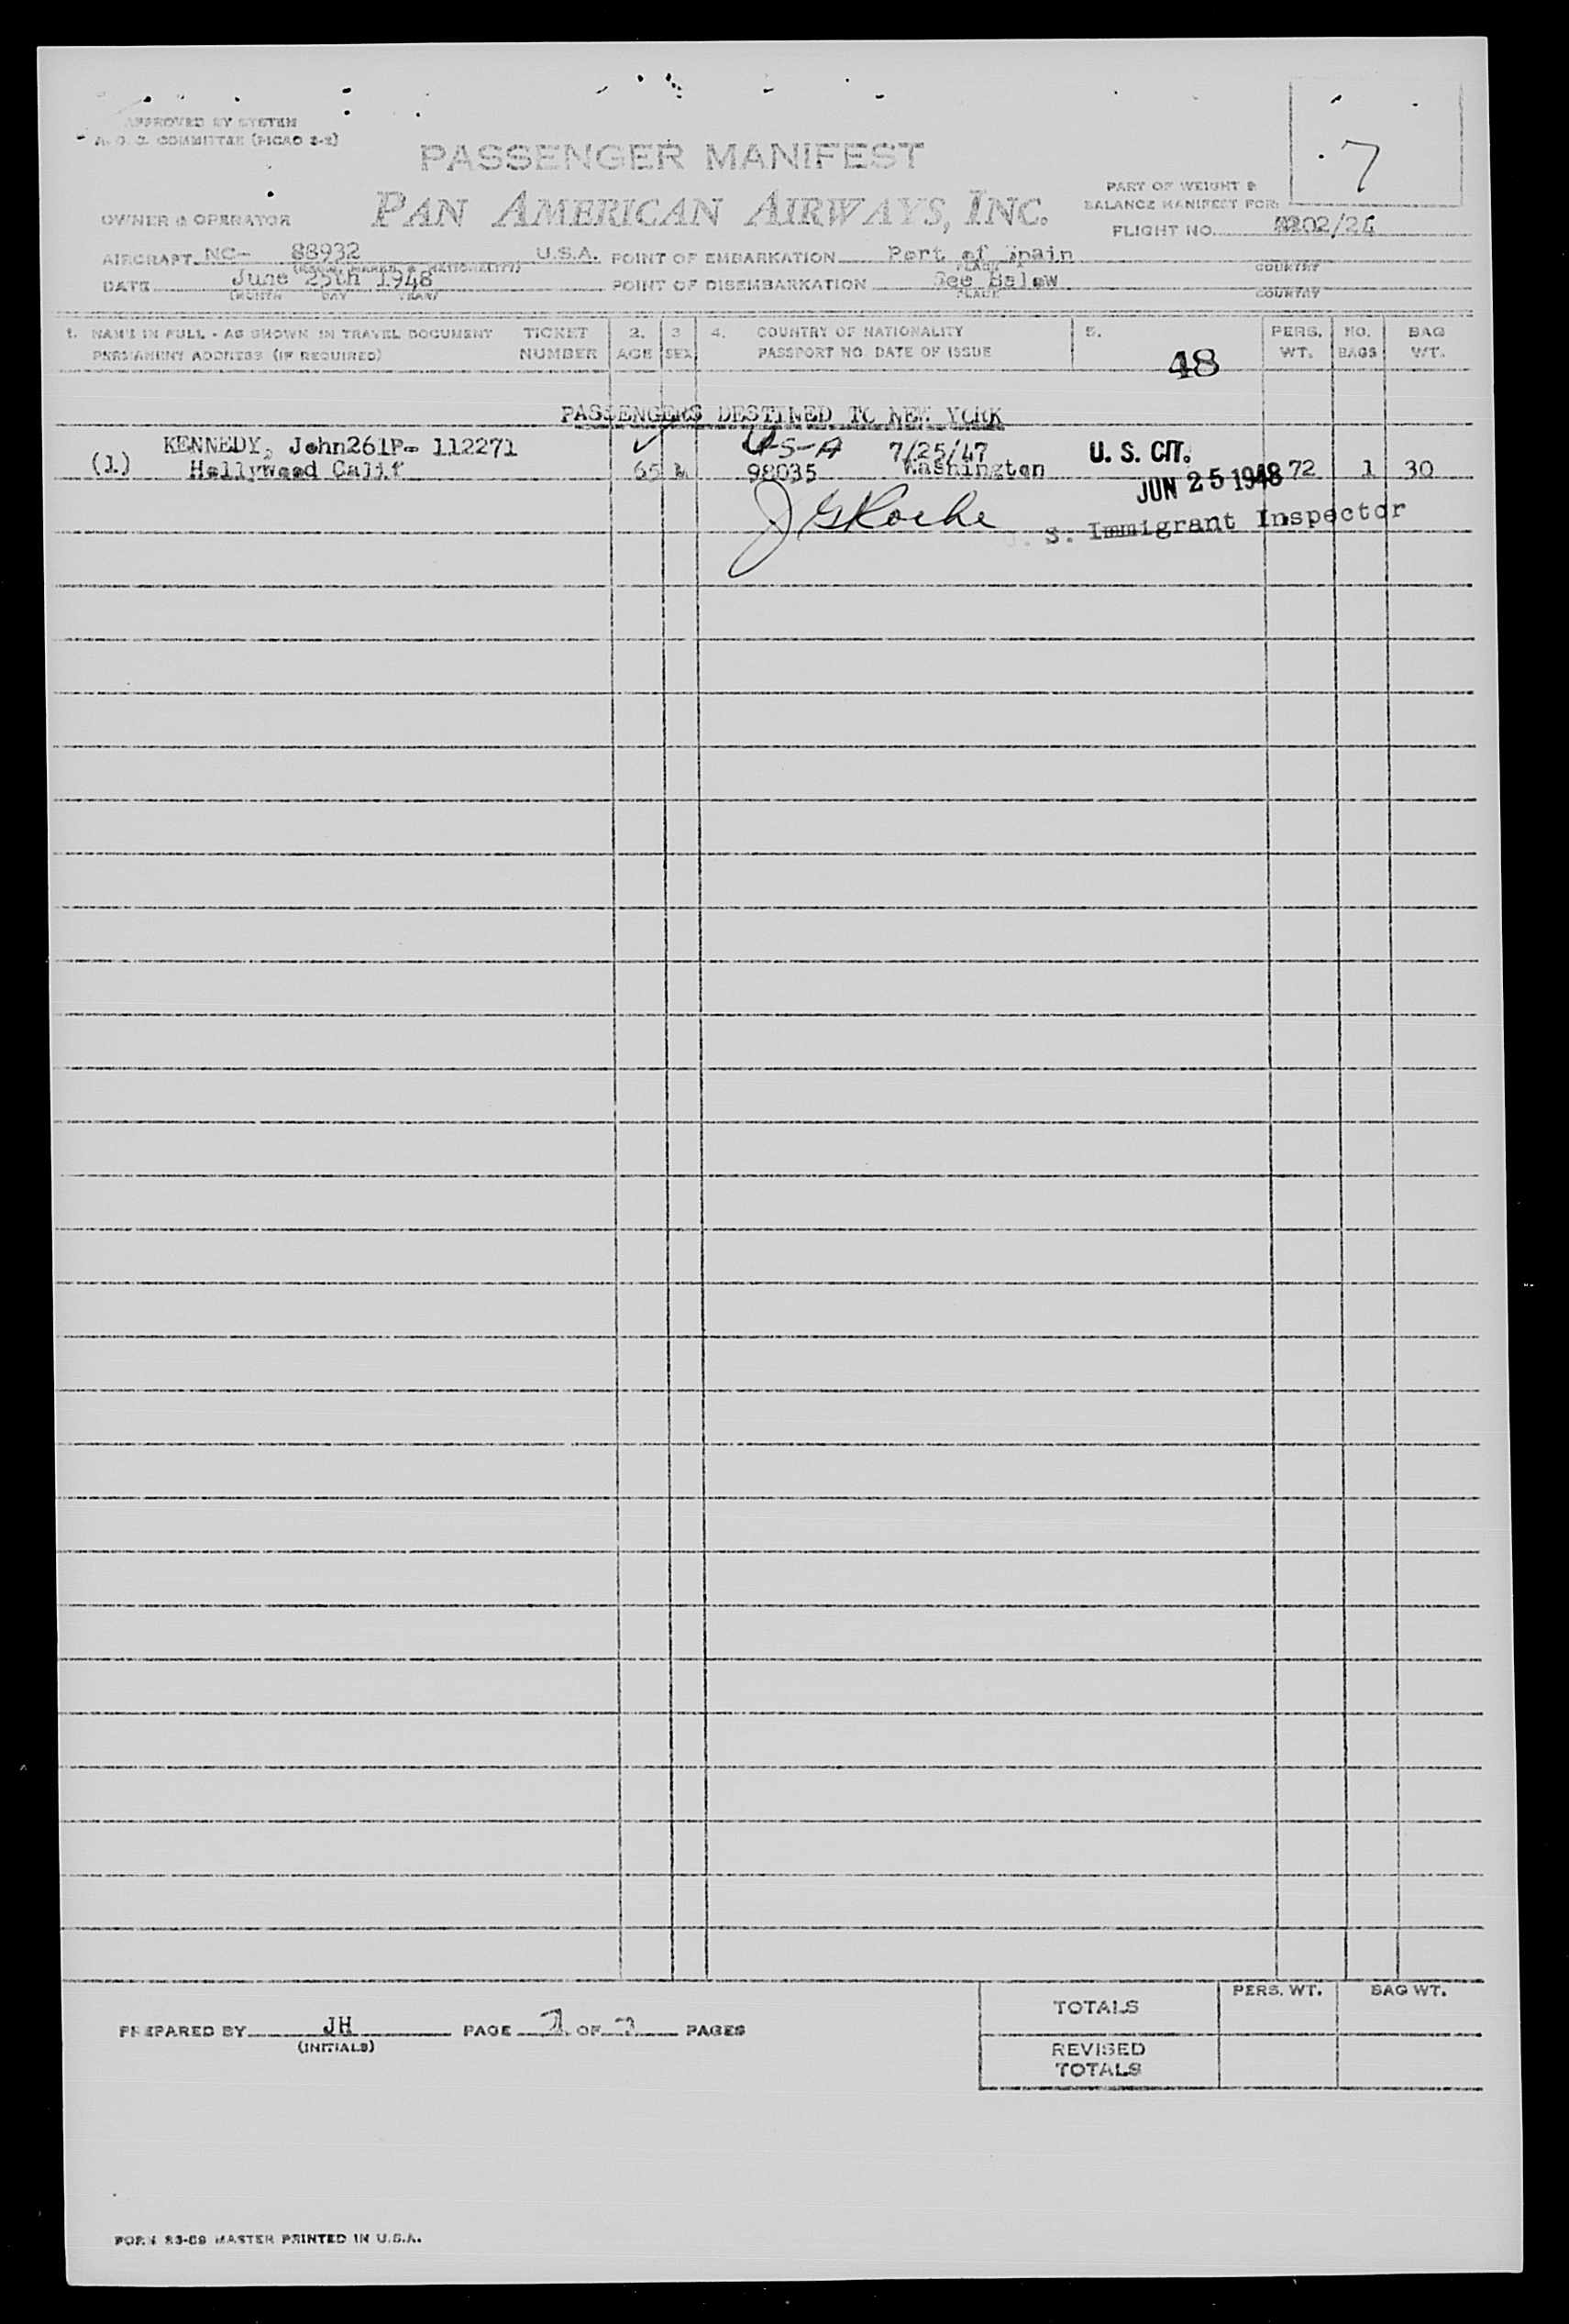 APPROVED BY SYSTEM
A. O. C. COMMITTEE (PICAO 2-2)
7
PASSENGER MANIFEST
PAN AMERICAN AIRWAYS, INC.
OWNER & OPERATOR
PART OF WEIGHT &
BALANCE MANIFEST FOR:
FLIGHT NO. 202/24
AIRCRAFT NC- 88932 U.S.A. POINT OF EMBARKATION Port of Spain
PLACE COUNTRY
DATE June 25th 1948 POINT OF DISEMBARKATION See Below
(MONTH DAY YEAR) PLACE COUNTRY
1. NAME IN FULL - AS SHOWN IN TRAVEL DOCUMENT TICKET 2. 3 4. COUNTRY OF NATIONALITY 5. PERS. NO. BAG
PERMANENT ADDRESS (IF REQUIRED) NUMBER AGE SEX PASSPORT NO. DATE OF ISSUE WT. BAGS WT.
48
PASSENGERS DESTINED TO NEW YORK
KENNEDY, John261P- 112271 ✓ U-S-A 7/25/47 U. S. CIT.
(1) Hollywood Calif 65 M 98035 Washington JUN 25 1948 72 1 30
J G Roche S. Immigrant Inspector
PREPARED BY JH PAGE OF PAGES
(INITIALS)
PERS. WT. BAG WT.
TOTALS
REVISED
TOTALS
FORM 83-69 MASTER PRINTED IN U.S.A.